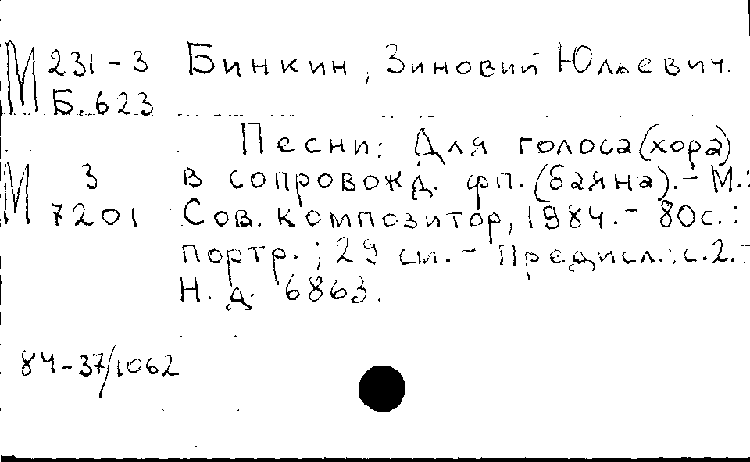 М 231-3 Бинкин, Зиновий Юльевич.
Б.623
Песни: Для голоса (хора)
М 3 в сопровожд. фп. (баяна). - М.:
7201 Сов. композитор, 1984. - 80с.:
портр.; 29 см. - Предисл.: с.2. -
Н. д. 6863.
84-37/1062